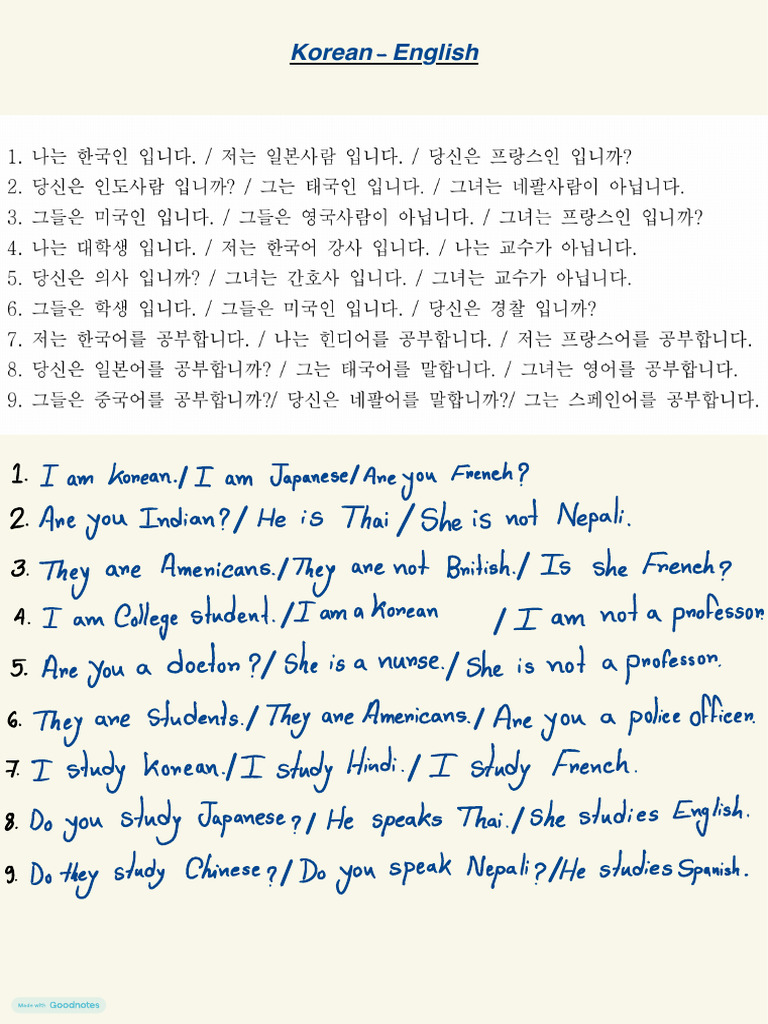 Korean – English
1. 나는 한국인 입니다. / 저는 일본사람 입니다. / 당신은 프랑스인 입니까?
2. 당신은 인도사람 입니까? / 그는 태국인 입니다. / 그녀는 네팔사람이 아닙니다.
3. 그들은 미국인 입니다. / 그들은 영국사람이 아닙니다. / 그녀는 프랑스인 입니까?
4. 나는 대학생 입니다. / 저는 한국어 강사 입니다. / 나는 교수가 아닙니다.
5. 당신은 의사 입니까? / 그녀는 간호사 입니다. / 그녀는 교수가 아닙니다.
6. 그들은 학생 입니다. / 그들은 미국인 입니다. / 당신은 경찰 입니까?
7. 저는 한국어를 공부합니다. / 나는 힌디어를 공부합니다. / 저는 프랑스어를 공부합니다.
8. 당신은 일본어를 공부합니까? / 그는 태국어를 말합니다. / 그녀는 영어를 공부합니다.
9. 그들은 중국어를 공부합니까?/ 당신은 네팔어를 말합니까?/ 그는 스페인어를 공부합니다.
1. I am Korean./ I am Japanese/Are you French?
2. Are you Indian?/ He is Thai / She is not Nepali.
3. They are Americans./They are not British./ Is she French?
4. I am College student./I am a Korean / I am not a professor.
5. Are you a doctor?/ She is a nurse./ She is not a professor.
6. They are students./ They are Americans./ Are you a police officer.
7. I study Korean./I study Hindi./ I study French.
8. Do you study Japanese?/ He speaks Thai./She studies English.
9. Do they study Chinese?/ Do you speak Nepali?/He studies Spanish.
Made with Goodnotes